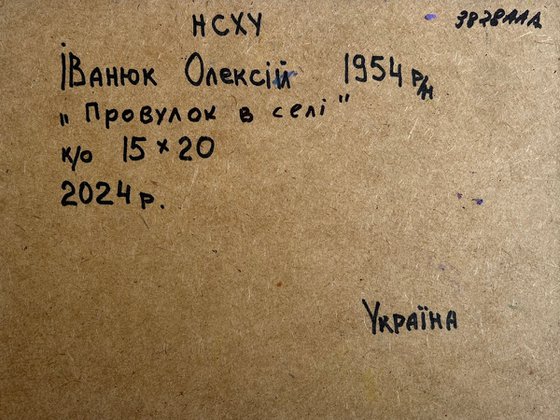 НСХУ
3878AAA
Іванюк Олексій 1954 р/н
„Провулок в селі"
к/о 15×20
2024 р.
Україна